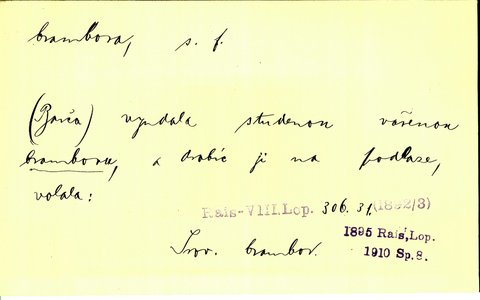 brambora, s. f.
(Barča) vyndala studenou vařenou
bramboru, a drobíc ji na podlaze,
volala:
Rais-VIII.Lop. 306. 31. (1892/3)
1895 Rais, Lop.
1910 Sp.8.
Srov. brambor.